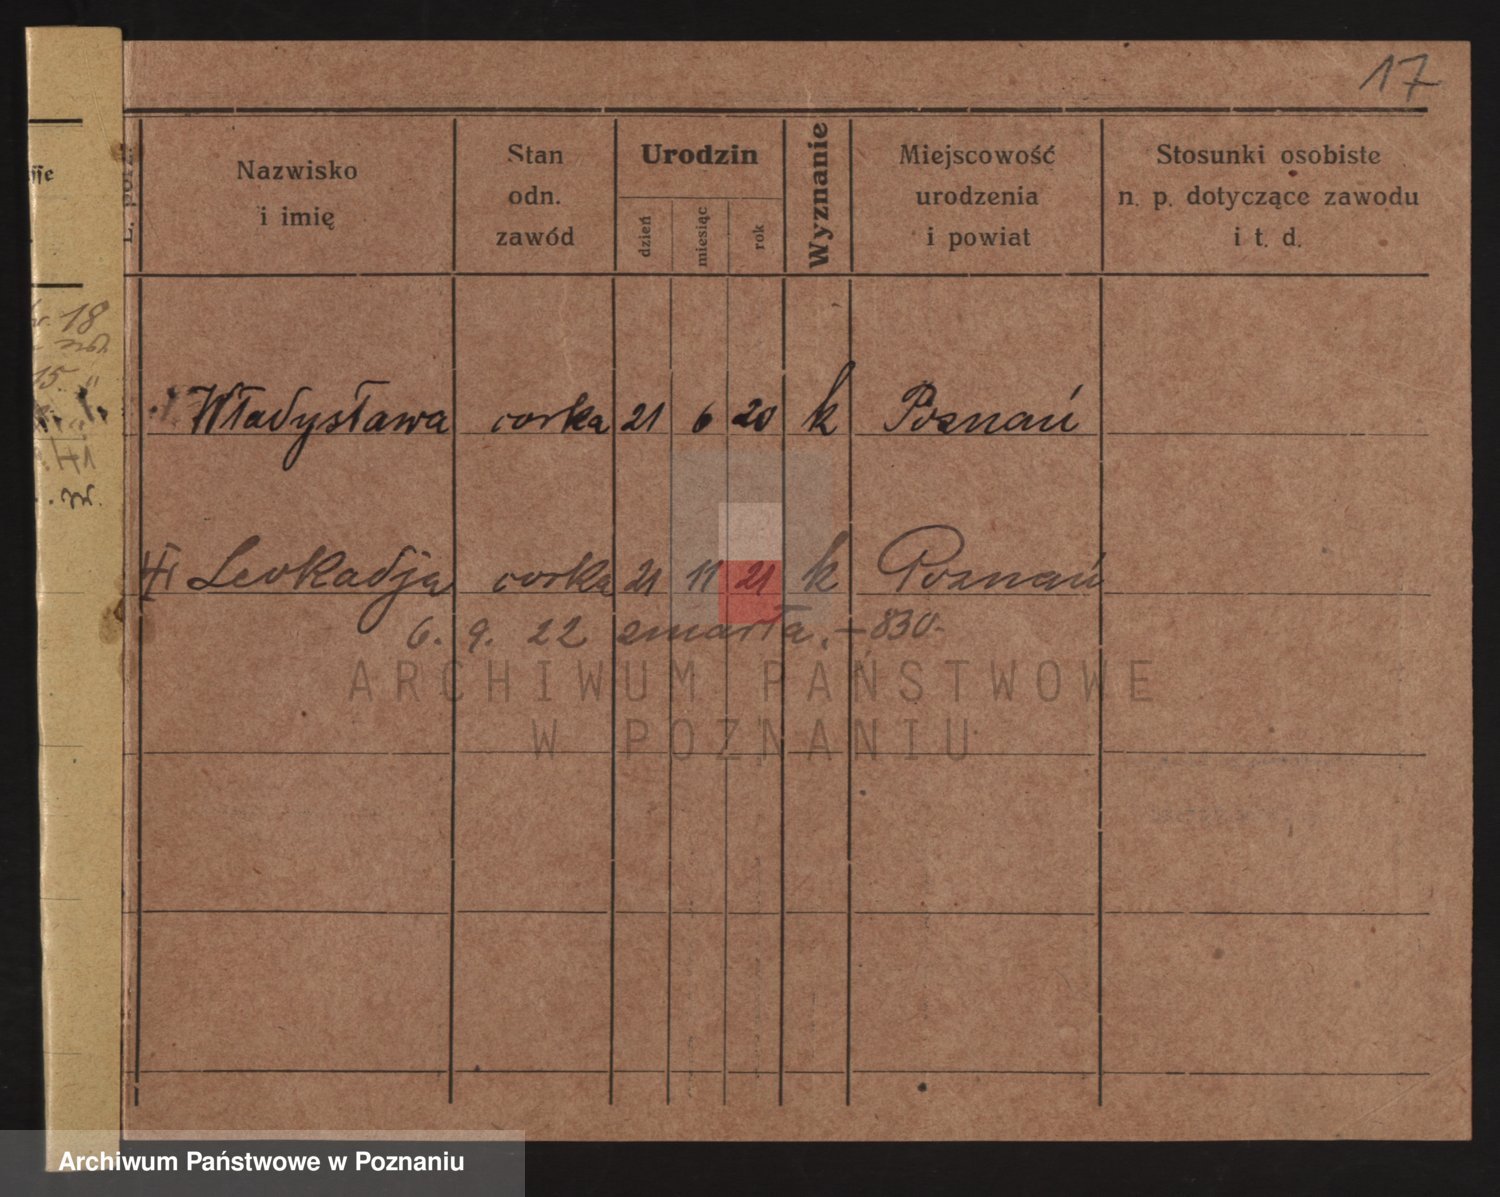 17
L. porz.
Nazwisko
i imię
Stan
odn.
zawód
Urodzin
dzień
miesiąc
rok
Wyznanie
Miejscowość
urodzenia
i powiat
Stosunki osobiste
n. p. dotyczące zawodu
i t. d.
18
15. "
Władysława corka 21 6 20 k Poznań
Leokadja corka 21 11 21 k Poznań
6. 9. 22 zmarła. - 830.
ARCHIWUM PAŃSTWOWE
W POZNANIU
Archiwum Państwowe w Poznaniu